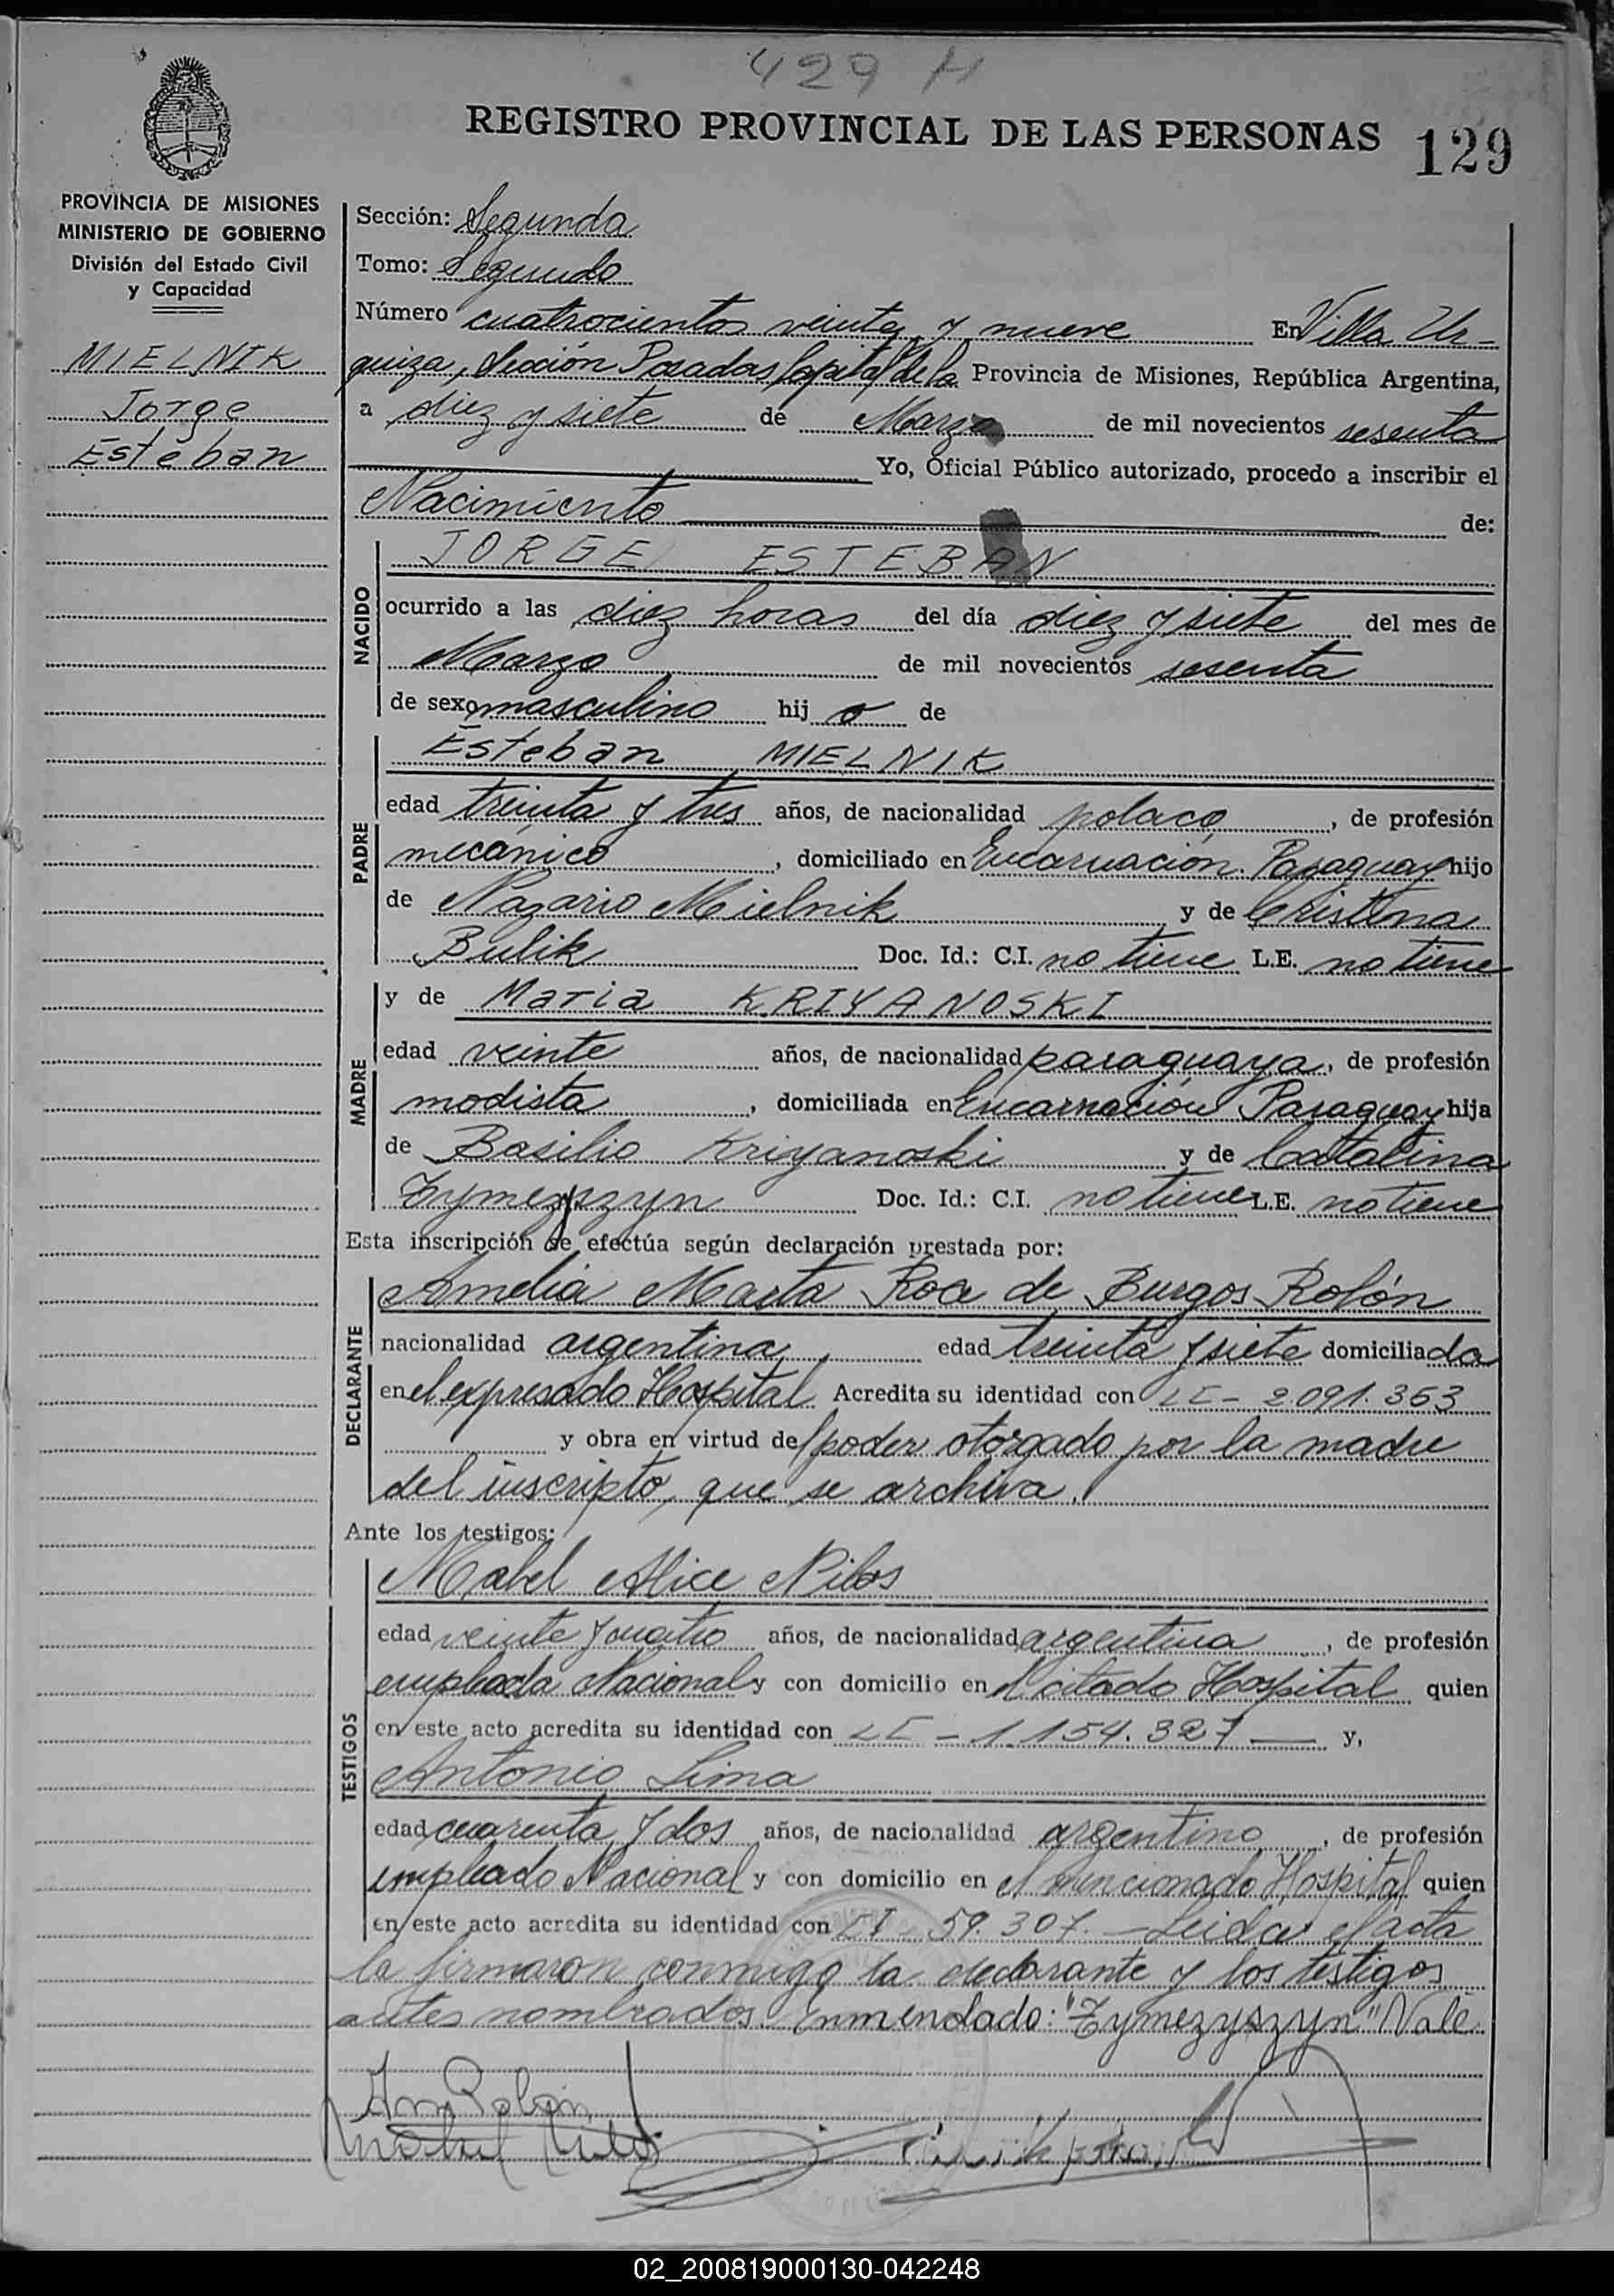 429 H
REGISTRO PROVINCIAL DE LAS PERSONAS 129
PROVINCIA DE MISIONES
MINISTERIO DE GOBIERNO
División del Estado Civil
y Capacidad
MIELNIK
Jorge
Esteban
Sección: Segunda
Tomo: Segundo
Número cuatrocientos veinte y nueve En Villa Ur-
quiza, Sección Posadas Capital de la Provincia de Misiones, República Argentina,
a diez y siete de Marzo de mil novecientos sesenta
Yo, Oficial Público autorizado, procedo a inscribir el
Nacimiento de:
NACIDO
JORGE ESTEBAN
ocurrido a las diez horas del día diez y siete del mes de
Marzo de mil novecientos sesenta
de sexo masculino hij o de
PADRE
Esteban MIELNIK
edad treinta y tres años, de nacionalidad polaco, de profesión
mecánico, domiciliado en Encarnación. Paraguay hijo
de Nazario Mielnik y de Cristina
Bulik Doc. Id.: C.I. no tiene L.E. no tiene
MADRE
y de Maria KRIYANOSKI
edad veinte años, de nacionalidad paraguaya, de profesión
modista, domiciliada en Encarnación Paraguay hija
de Basilio Kriyanoski y de Catalina
Tymezyszyn Doc. Id.: C.I. no tiene L.E. no tiene
Esta inscripción se efectúa según declaración prestada por:
DECLARANTE
Amelia Marta Roa de Burgos Rolón
nacionalidad argentina, edad treinta y siete domiciliada
en el expresado Hospital Acredita su identidad con LC - 2.091.363
y obra en virtud de poder otorgado por la madre
del inscripto, que se archiva.
Ante los testigos:
TESTIGOS
Mabel Alice Nilos
edad veinte y cuatro años, de nacionalidad argentina, de profesión
empleada Nacional y con domicilio en el citado Hospital quien
en este acto acredita su identidad con LC - 1.154.327 — y,
Antonio Lima
edad cuarenta y dos años, de nacionalidad argentino, de profesión
empleado Nacional y con domicilio en el mencionado Hospital quien
en este acto acredita su identidad con CI - 59.307. — Leida el acta
la firmaron conmigo la declarante y los testigos
antes nombrados. Enmendado: "Tymezyszyn" Vale.
02_200819000130-042248